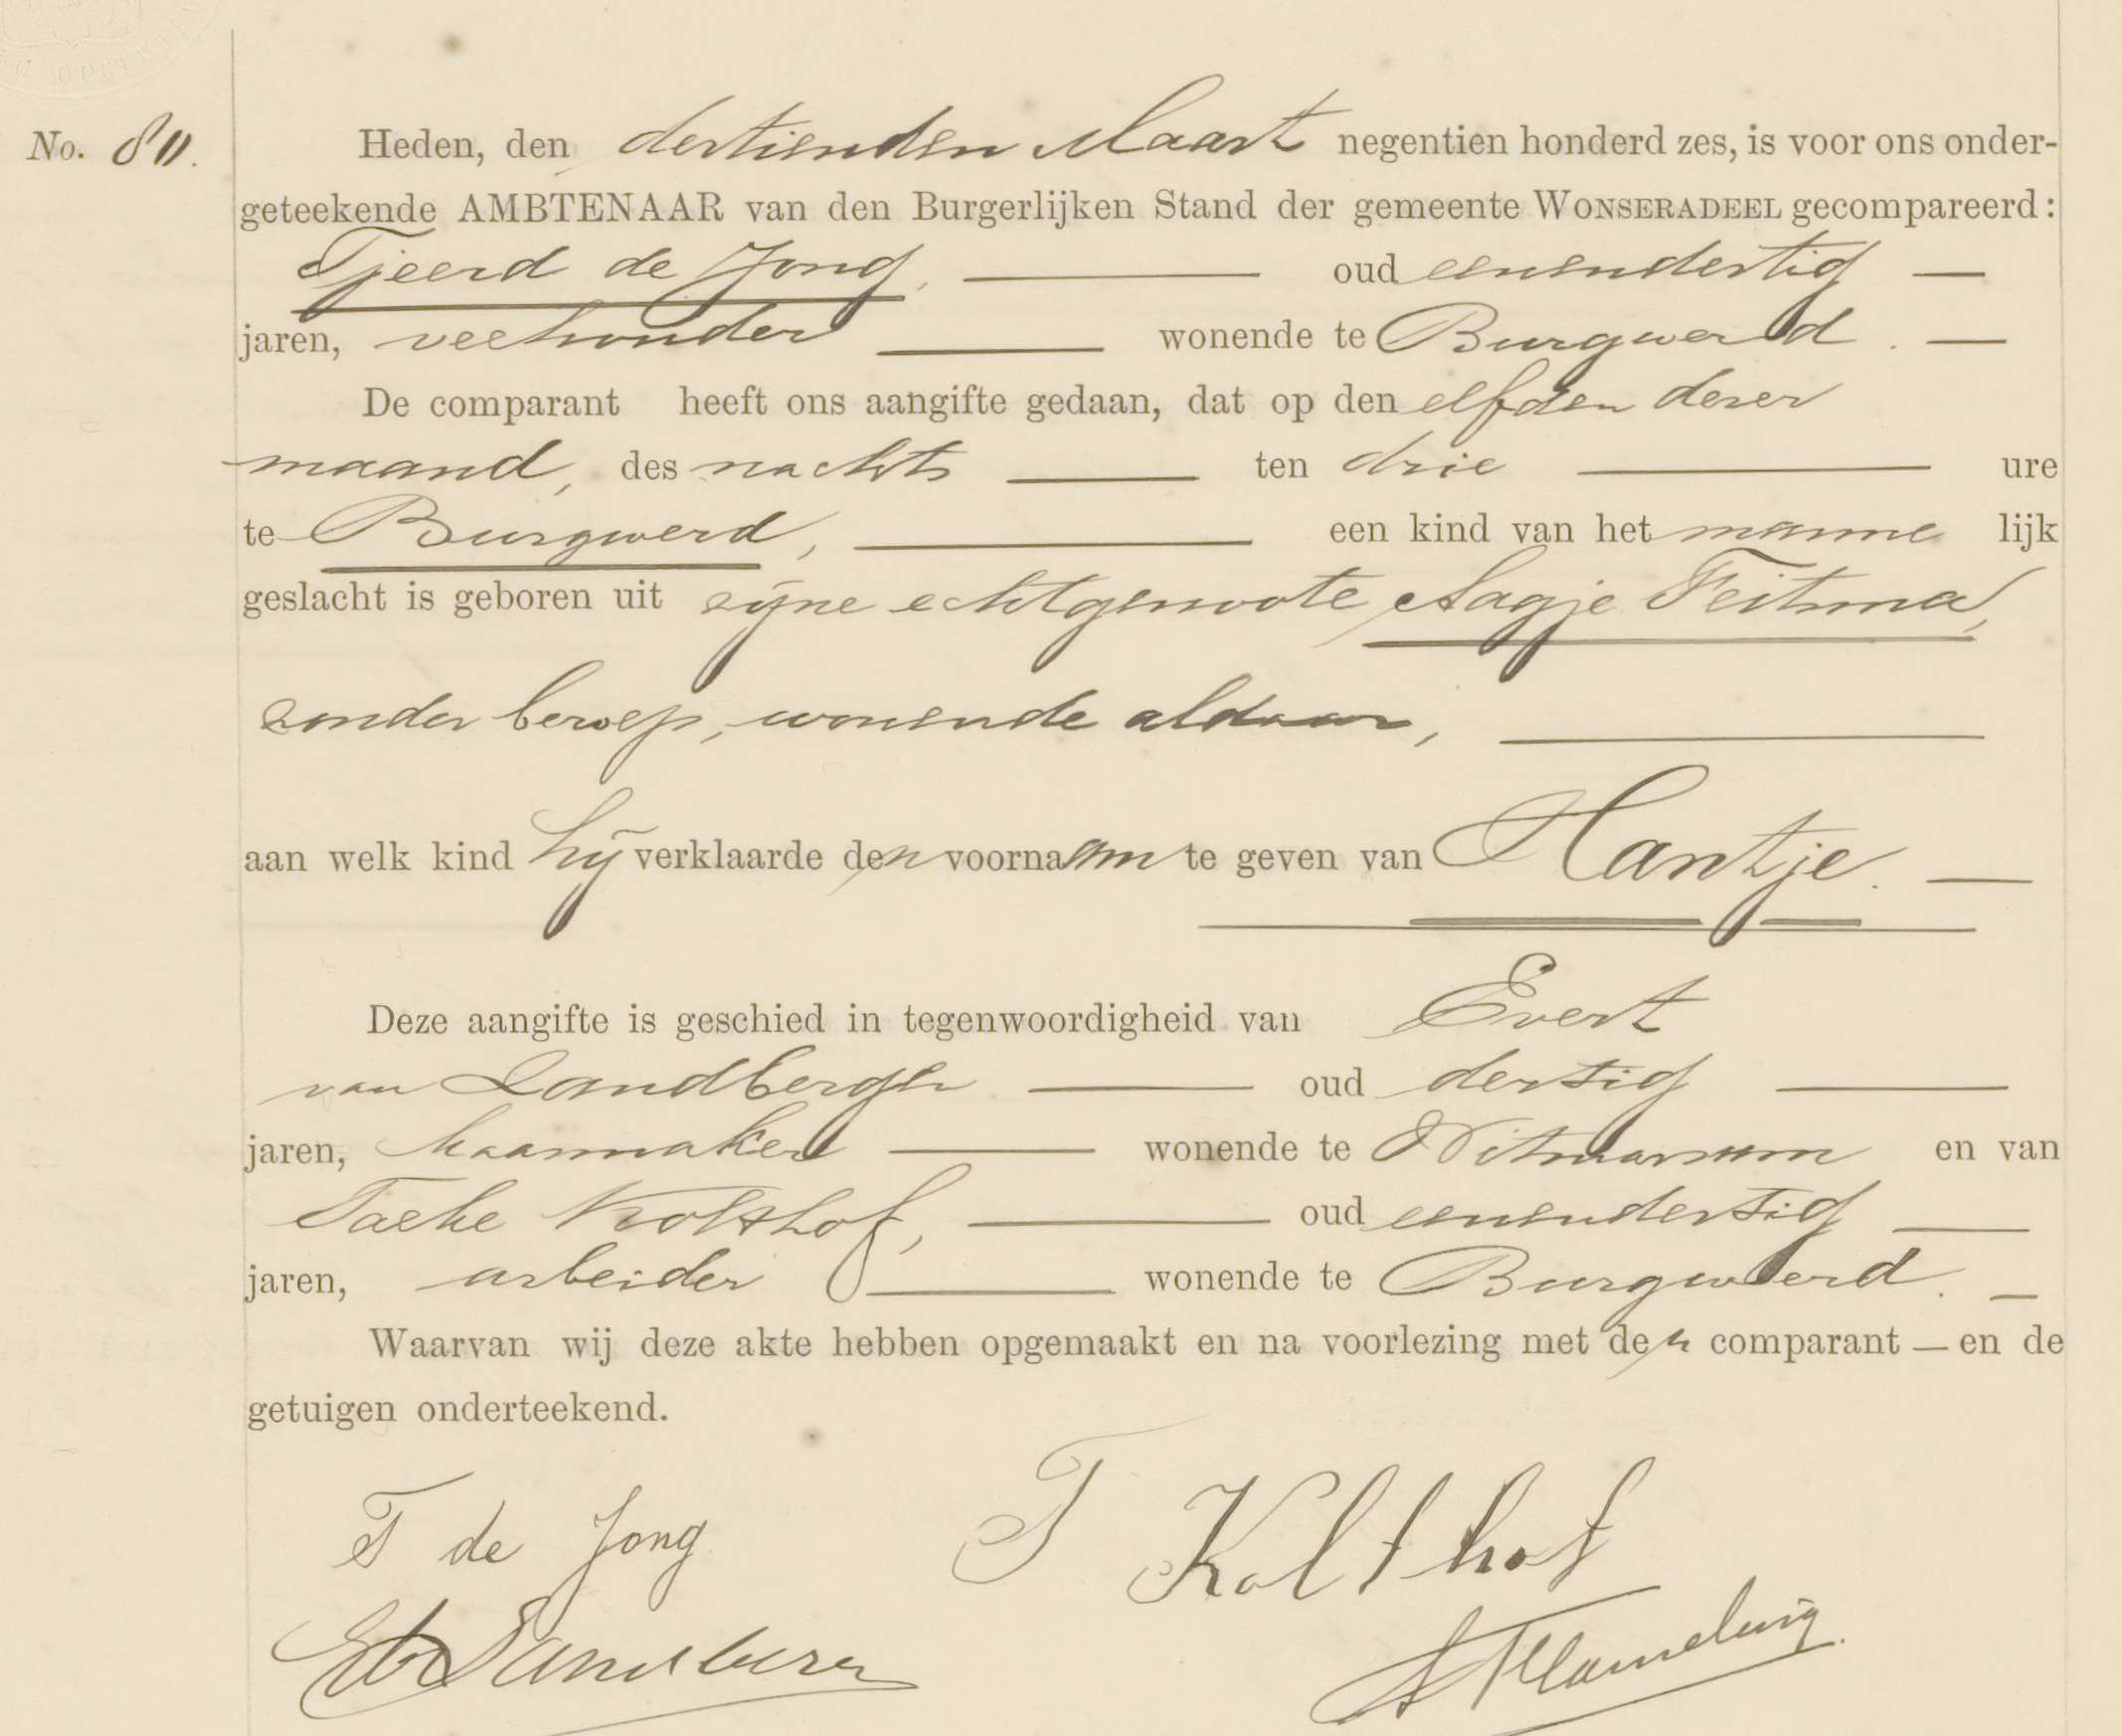 No. 80.
Heden, den dertienden Maart negentien honderd zes, is voor ons onder-
geteekende AMBTENAAR van den Burgerlijken Stand der gemeente WONSERADEEL gecompareerd:
Tjeerd de Jong, — oud eenendertig —
jaren, veehouder — wonende te Burgwerd. —
De comparant heeft ons aangifte gedaan, dat op den elfden dezer
maand, des nachts — ten drie — ure
te Burgwerd, — een kind van het manne lijk
geslacht is geboren uit zijne echtgenoote Aagje Feitsma,
zonder beroep, wonende aldaar, —
aan welk kind hij verklaarde den voornaam te geven van Hantje. —
Deze aangifte is geschied in tegenwoordigheid van Evert
van Landbergh — oud dertig —
jaren, kaasmaker — wonende te Witmarsum en van
Taeke Kolthof, — oud eenendertig —
jaren, arbeider — wonende te Burgwerd. —
Waarvan wij deze akte hebben opgemaakt en na voorlezing met den comparant — en de
getuigen onderteekend.
T de Jong T Kolthof